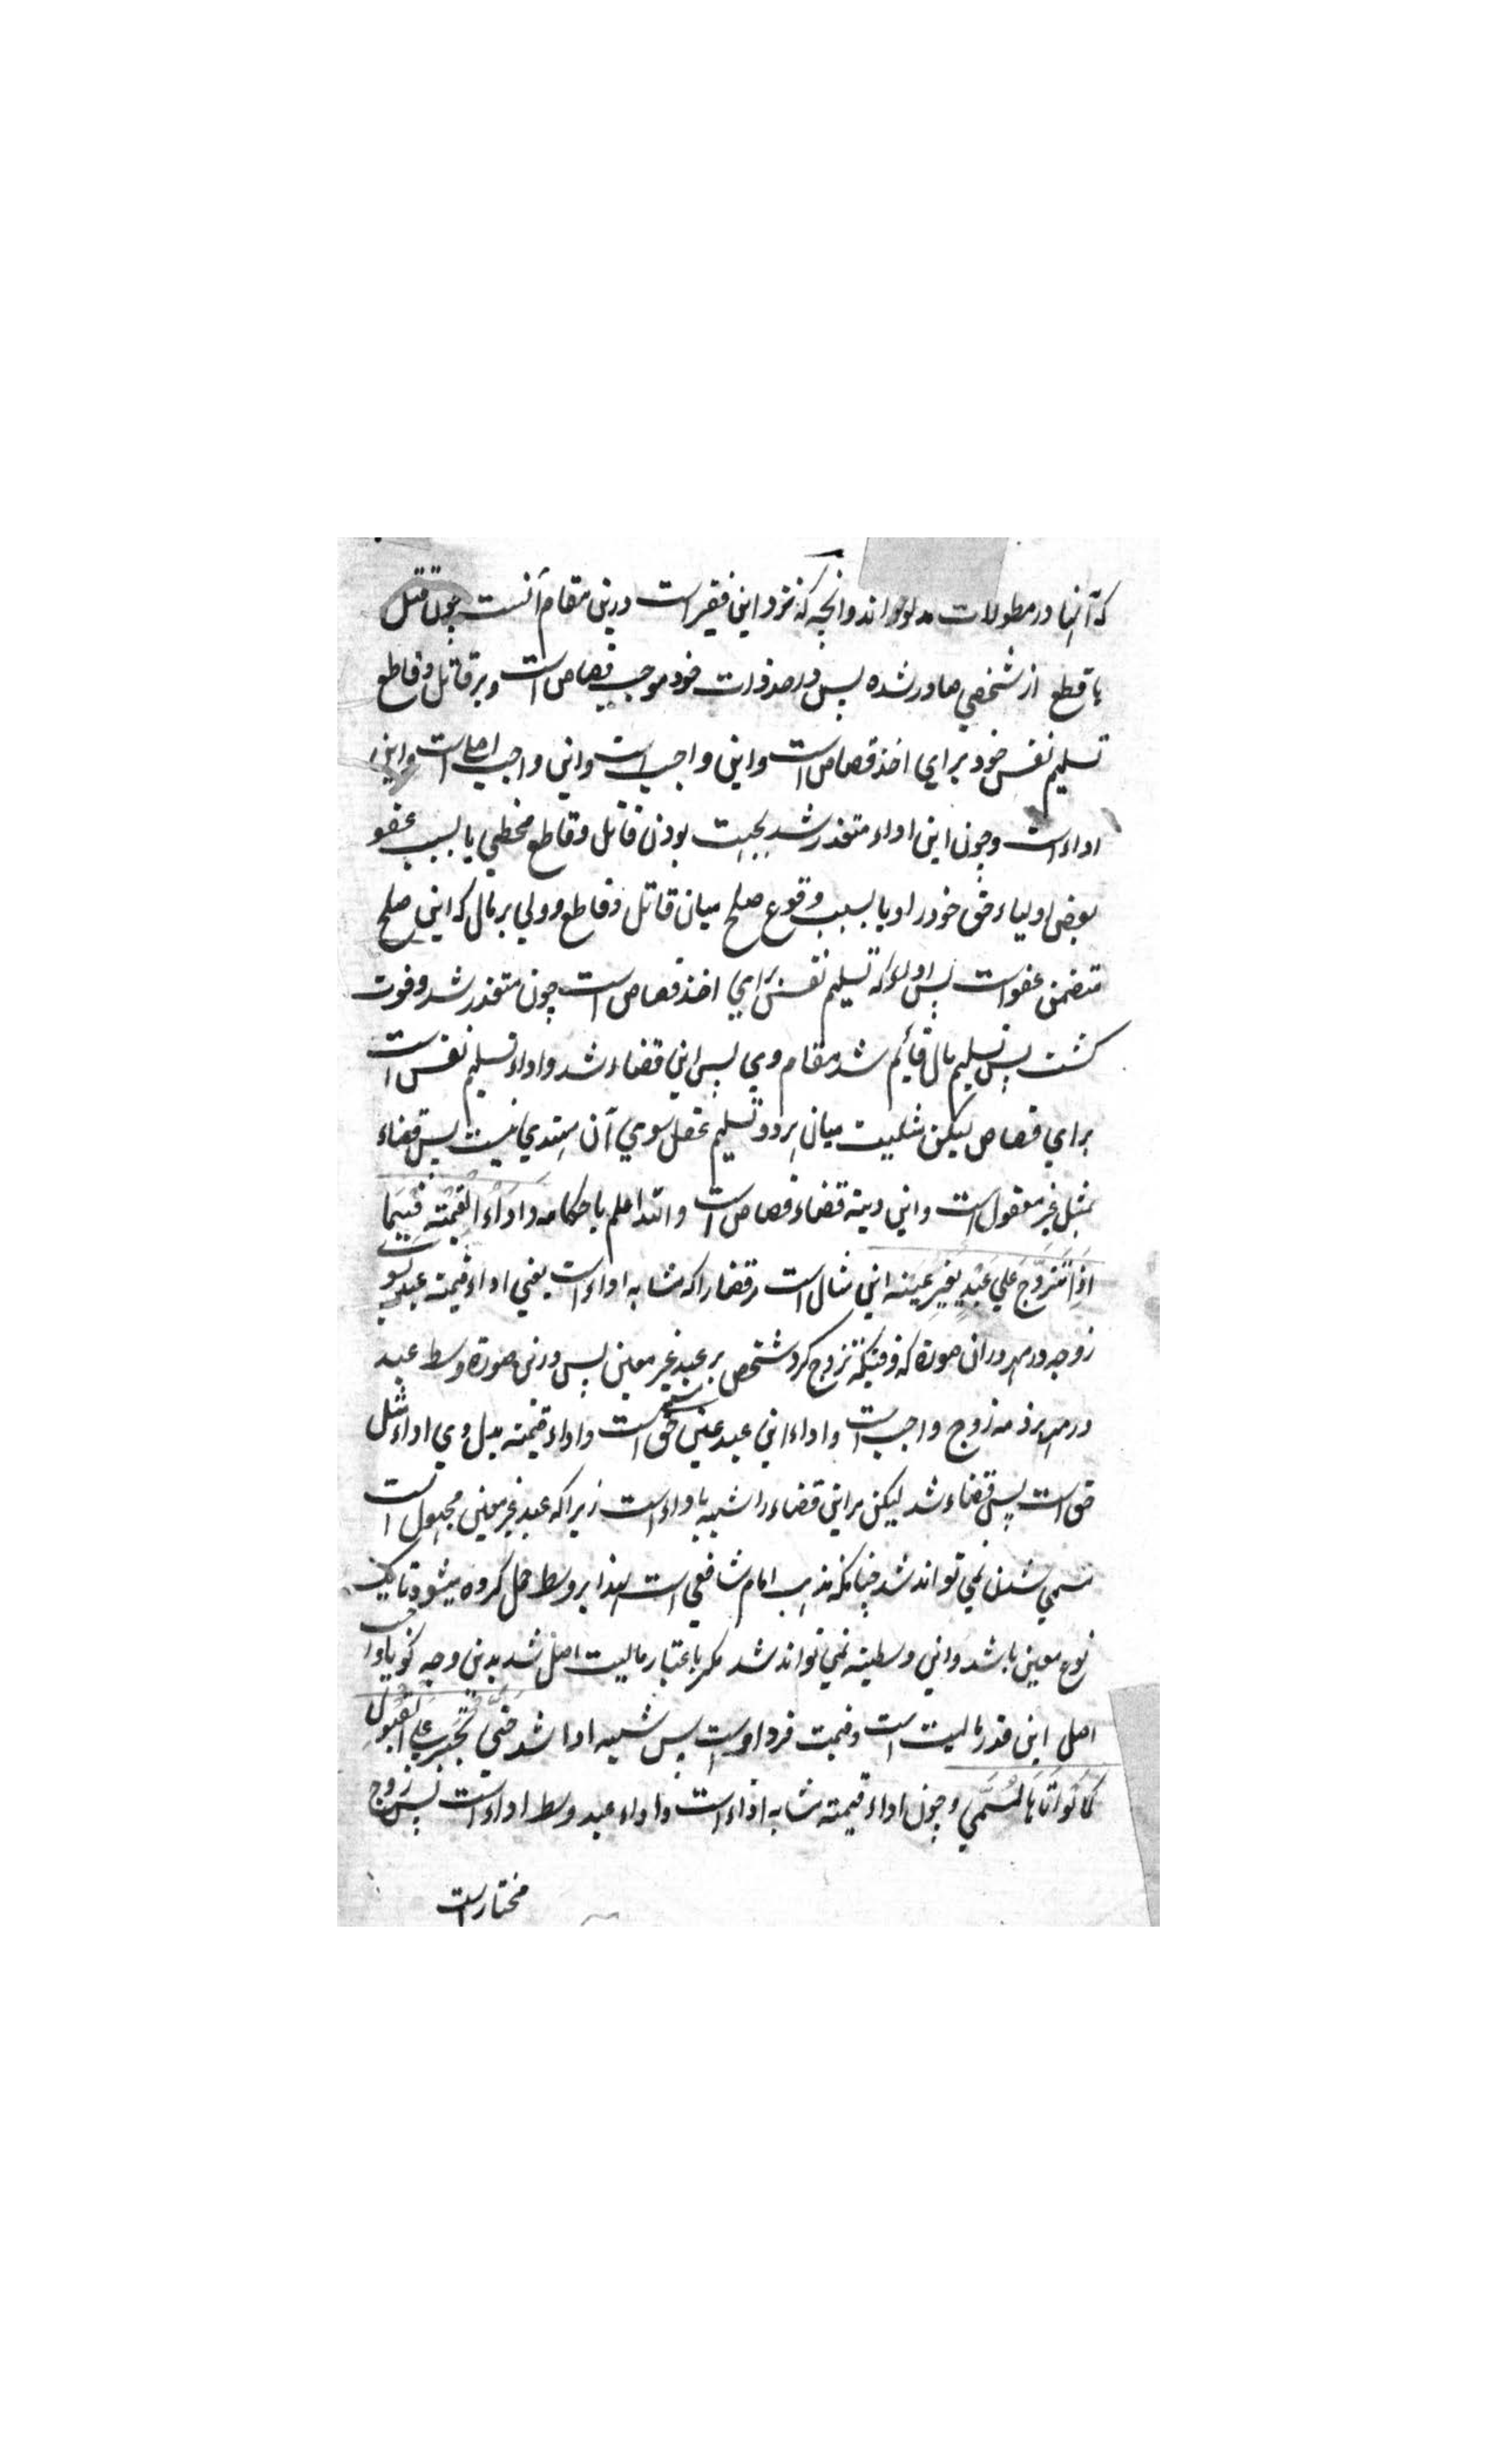 که آنها در مطولات مدلول اند وانچه که نزد این فقیر است درین مقام آنست چون قتل
یا قطع از شخصی صادر شده پس در حد ذات خود موجب قصاص است و بر قاتل و قاطع
تسلیم نفس خود برای اخذ قصاص است واین واجب است واین واجب اصل است واین
اداء است وچون این اداء متعذر شد بجهت بودن قاتل وقاطع مخطی یا بسبب عفو
بعض اولیاء حق خود را و یا بسبب وقوع صلح میان قاتل وقاطع و ولی بر مال که این صلح
متضمن عفو است پس اداء که تسلیم نفس برای اخذ قصاص است چون متعذر شد و فوت
گشت پس تسلیم مال قائم شد مقام وی پس این قضاء شد و اداء تسلیم نفس است
برای قصاص لیکن مثلیت میان هر دو تسلیم عقل سوی آن مهتدی نیست پس قضاء
بمثل غیر معقول است واین دیته قضاء قصاص است والله اعلم باحکامه وَاَدَاءُ الْقِيْمَةِ فِيْمَا
اِذَا تَزَوَّجَ عَلٰي عَبْدٍ بِغَيْرِ عَيْنِه این مثال است مر قضا را که مشابه اداء است یعنی اداء قیمته عبد بسوی
زوجه در مهر در ان صورة که وقتیکه تزوج کرد شخص بر عبد غیر معین پس درین صورة وسط عبد
در مهر بر ذمه زوج واجب است و اداء این عبد عین حق است و اداء قیمته مثل وی اداء مثل
حق است پس قضاء شد لیکن مر این قضاء را شبیه باداء است زیرا که عبد غیر معین مجهول است
مسمی شدن نمی تواند شد چنانکه مذهب امام شافعی است لهذا بر وسط حمل کرده میشود تا یک
نوع معین باشد واین وسطیته نمی تواند شد مگر باعتبار مالیت اصل شد بدین وجه گویا و
اصل این قدر مالیت است وقیمت فرد اوست پس شبیه ادا شد حَتّٰي تُجْبَرَ عَلَي الْقَبُوْلِ
كَمَا لَوْ اَتَاهَا الْمُسَمّٰي وچون اداء قیمته مشابه اداء است و اداء عبد وسط اداء است پس زوج
مختار است